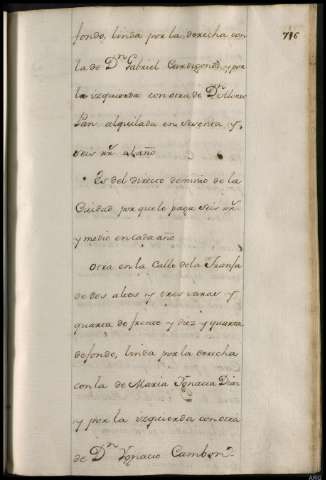 716
fondo, linda por la derecha con
la de Dn Gabriel y por
la izquierda con otra de Dn
Pan alquilada en sesenta y
seis rr. al año
Es del directo dominio de la
Ciudad por que le paga seis rr.
y medio en cada año
Otra en la Calle de la
de dos altos y tres varas y
quarta de frente y diez y quarta
de fondo, linda por la derecha
con la de Maria Ygnacia Diaz
y por la izquierda con otra
de Dn Ygnacio Cambon.
ARG